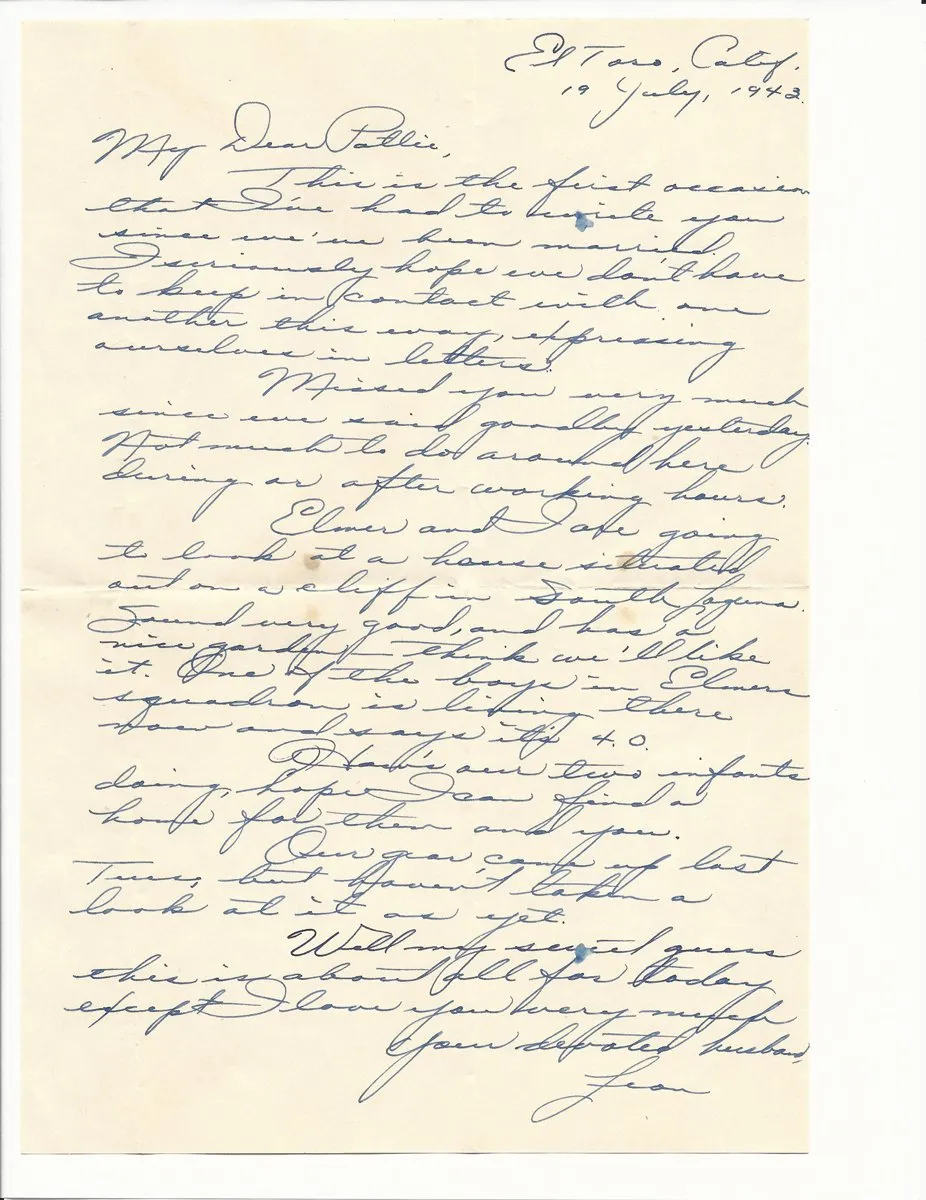 El Toro, Calif.
19 July, 1943.
My Dear Pattie,
This is the first occasion
that I've had to write you
since we've been married.
I seriously hope we don't have
to keep in contact with one
another this way, expressing
ourselves in letters.
Missed you very much
since we said goodby yesterday.
Not much to do around here
during or after working hours.
Elmer and I are going
to look at a house situated
out on a cliff in South Laguna.
Sound very good, and has a
nice garden – think we'll like
it. One of the boys in Elmers
squadron is living there
now and says its 4.0.
How's our two infants
doing, hope I can find a
home for them and you.
Our gear came up last
Tues, but haven't taken a
look at it as yet.
Well my sweet guess
this is about all for today
except I love you very much
Your devoted husband,
Leon